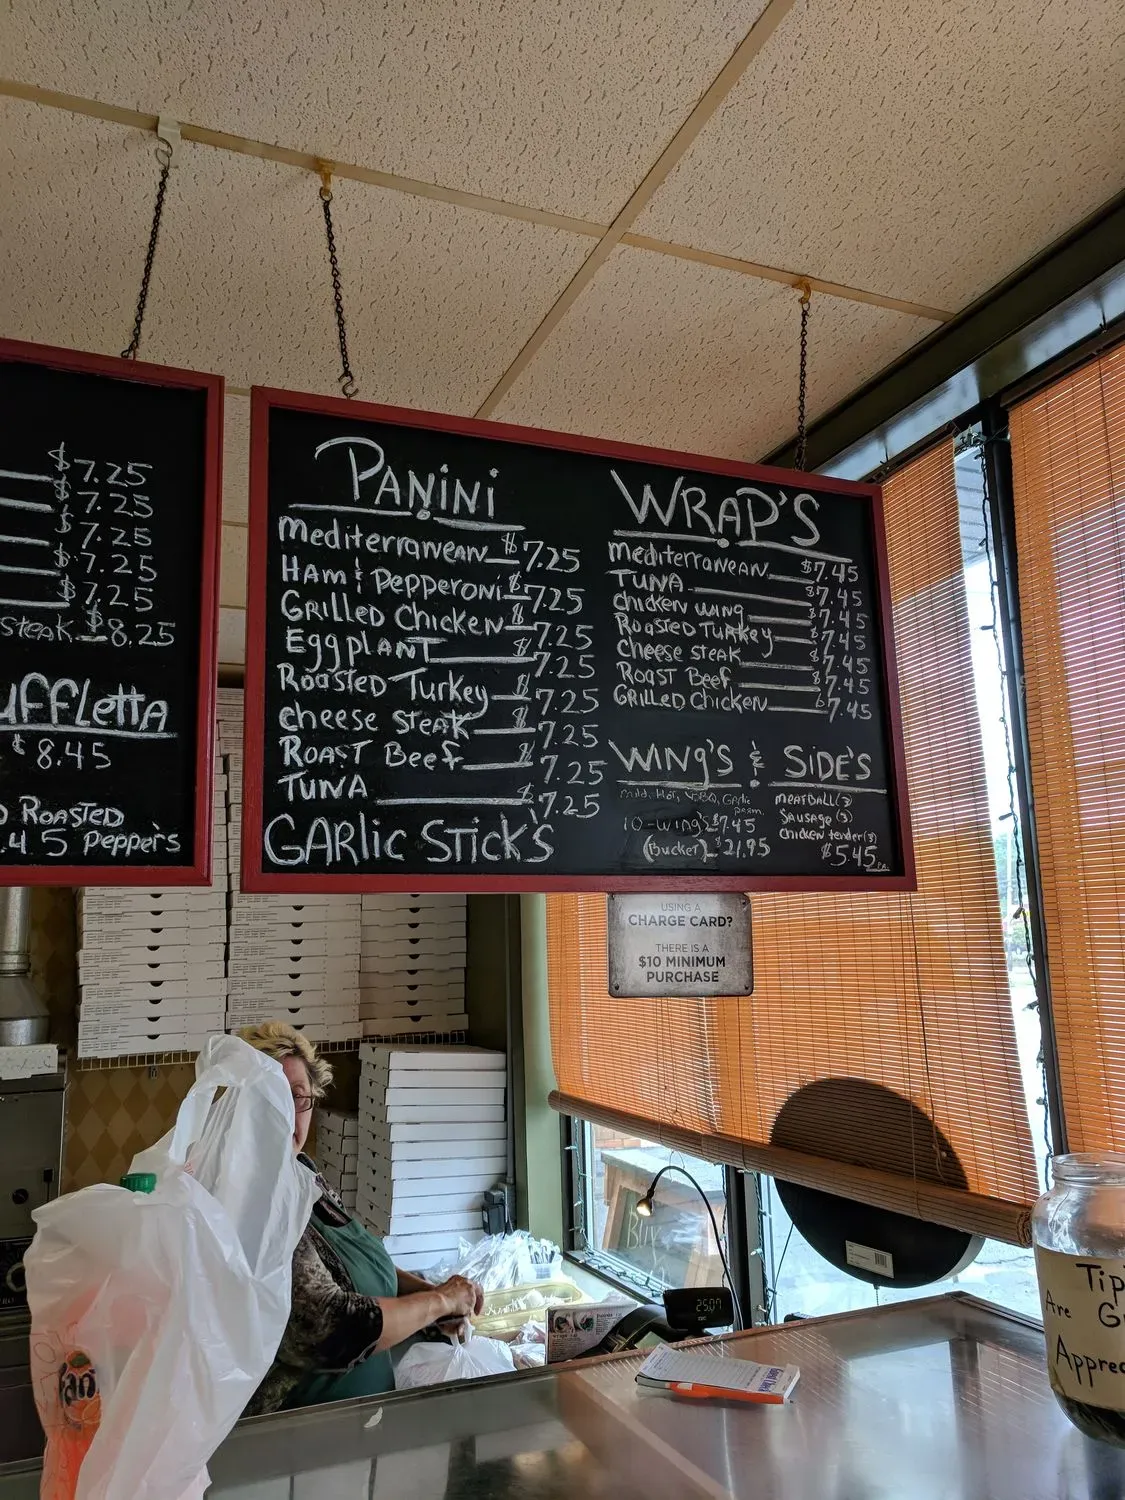 $7.25
$7.25
$7.25
$7.25
$7.25
steak $8.25
uffLetta
$8.45
ROASTED
.45 Pepper's
PANiNi
Mediterranean $7.25
HAM & Pepperoni $7.25
GRilled Chicken $7.25
EggplANT $7.25
Roasted Turkey $7.25
cheese steak $7.25
ROAST Beef $7.25
TUNA $7.25
GARlic STicK'S
WRAP'S
Mediterranean $7.45
TUNA $7.45
chicken wing $7.45
Roasted Turkey $7.45
cheese steak $7.45
Roast Beef $7.45
GRilled Chicken $7.45
WiNg'S & SiDE'S
mild, Hot, BBQ, Garlic
parm
10-wing's $7.45
(Bucket) $21.95
MEATBALL(3)
SAUSAge(3)
Chicken tender(3)
$5.45 ea.
USING A
CHARGE CARD?
THERE IS A
$10 MINIMUM
PURCHASE
25.07
Tip
Are G
Apprec